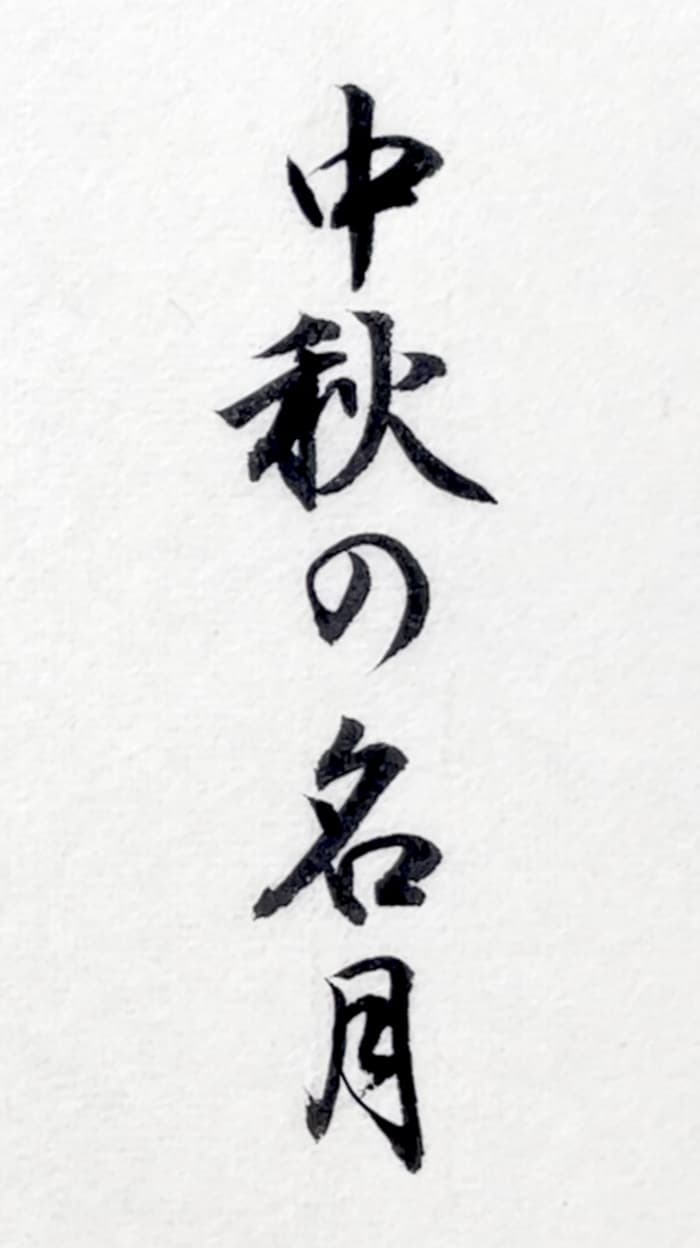 中秋の名月